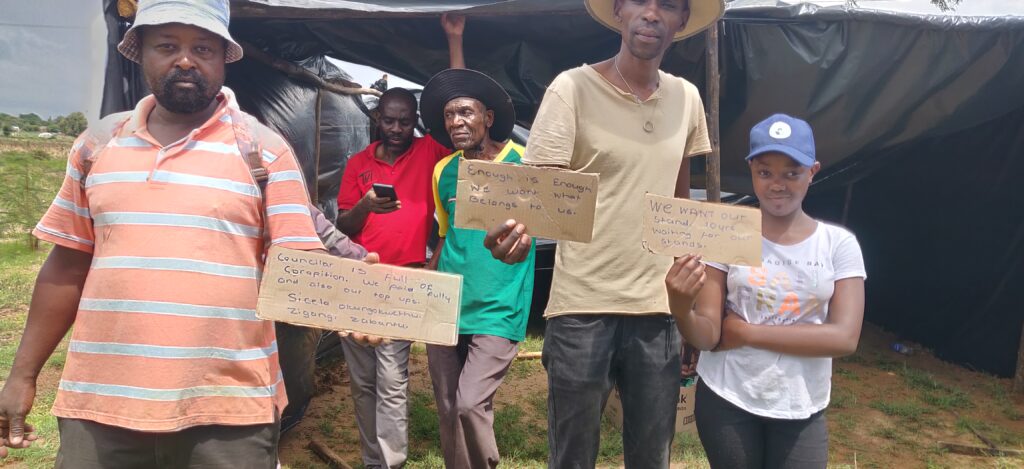 Councilar is Full OF
Corapition. We paid fully
and also our top ups.
Sicela okungokwethu
Zigangi Zabantu
Enough is Enough
We want what
Belongs to us.
WE WANT OUR
Stand/ 10yrs
Waiting for our
Stands.